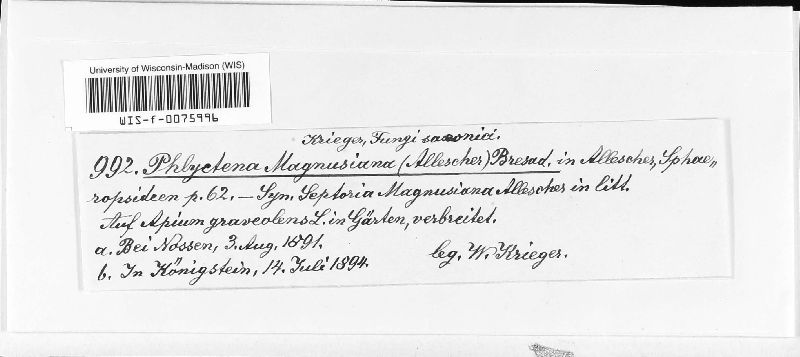 University of Wisconsin-Madison (WIS)
WIS-f-0075996
Krieger, Fungi saxonici.
992. Phlyctena Magnusiana (Allescher) Bresad. in Allescher, Sphae„
ropsideen p. 62. — Syn. Septoria Magnusiana Allescher in litt.
Auf Apium graveolens L. in Gärten, verbreitet.
a. Bei Nossen, 3. Aug. 1891.
b. In Königstein, 14. Juli 1894.
leg. W. Krieger.